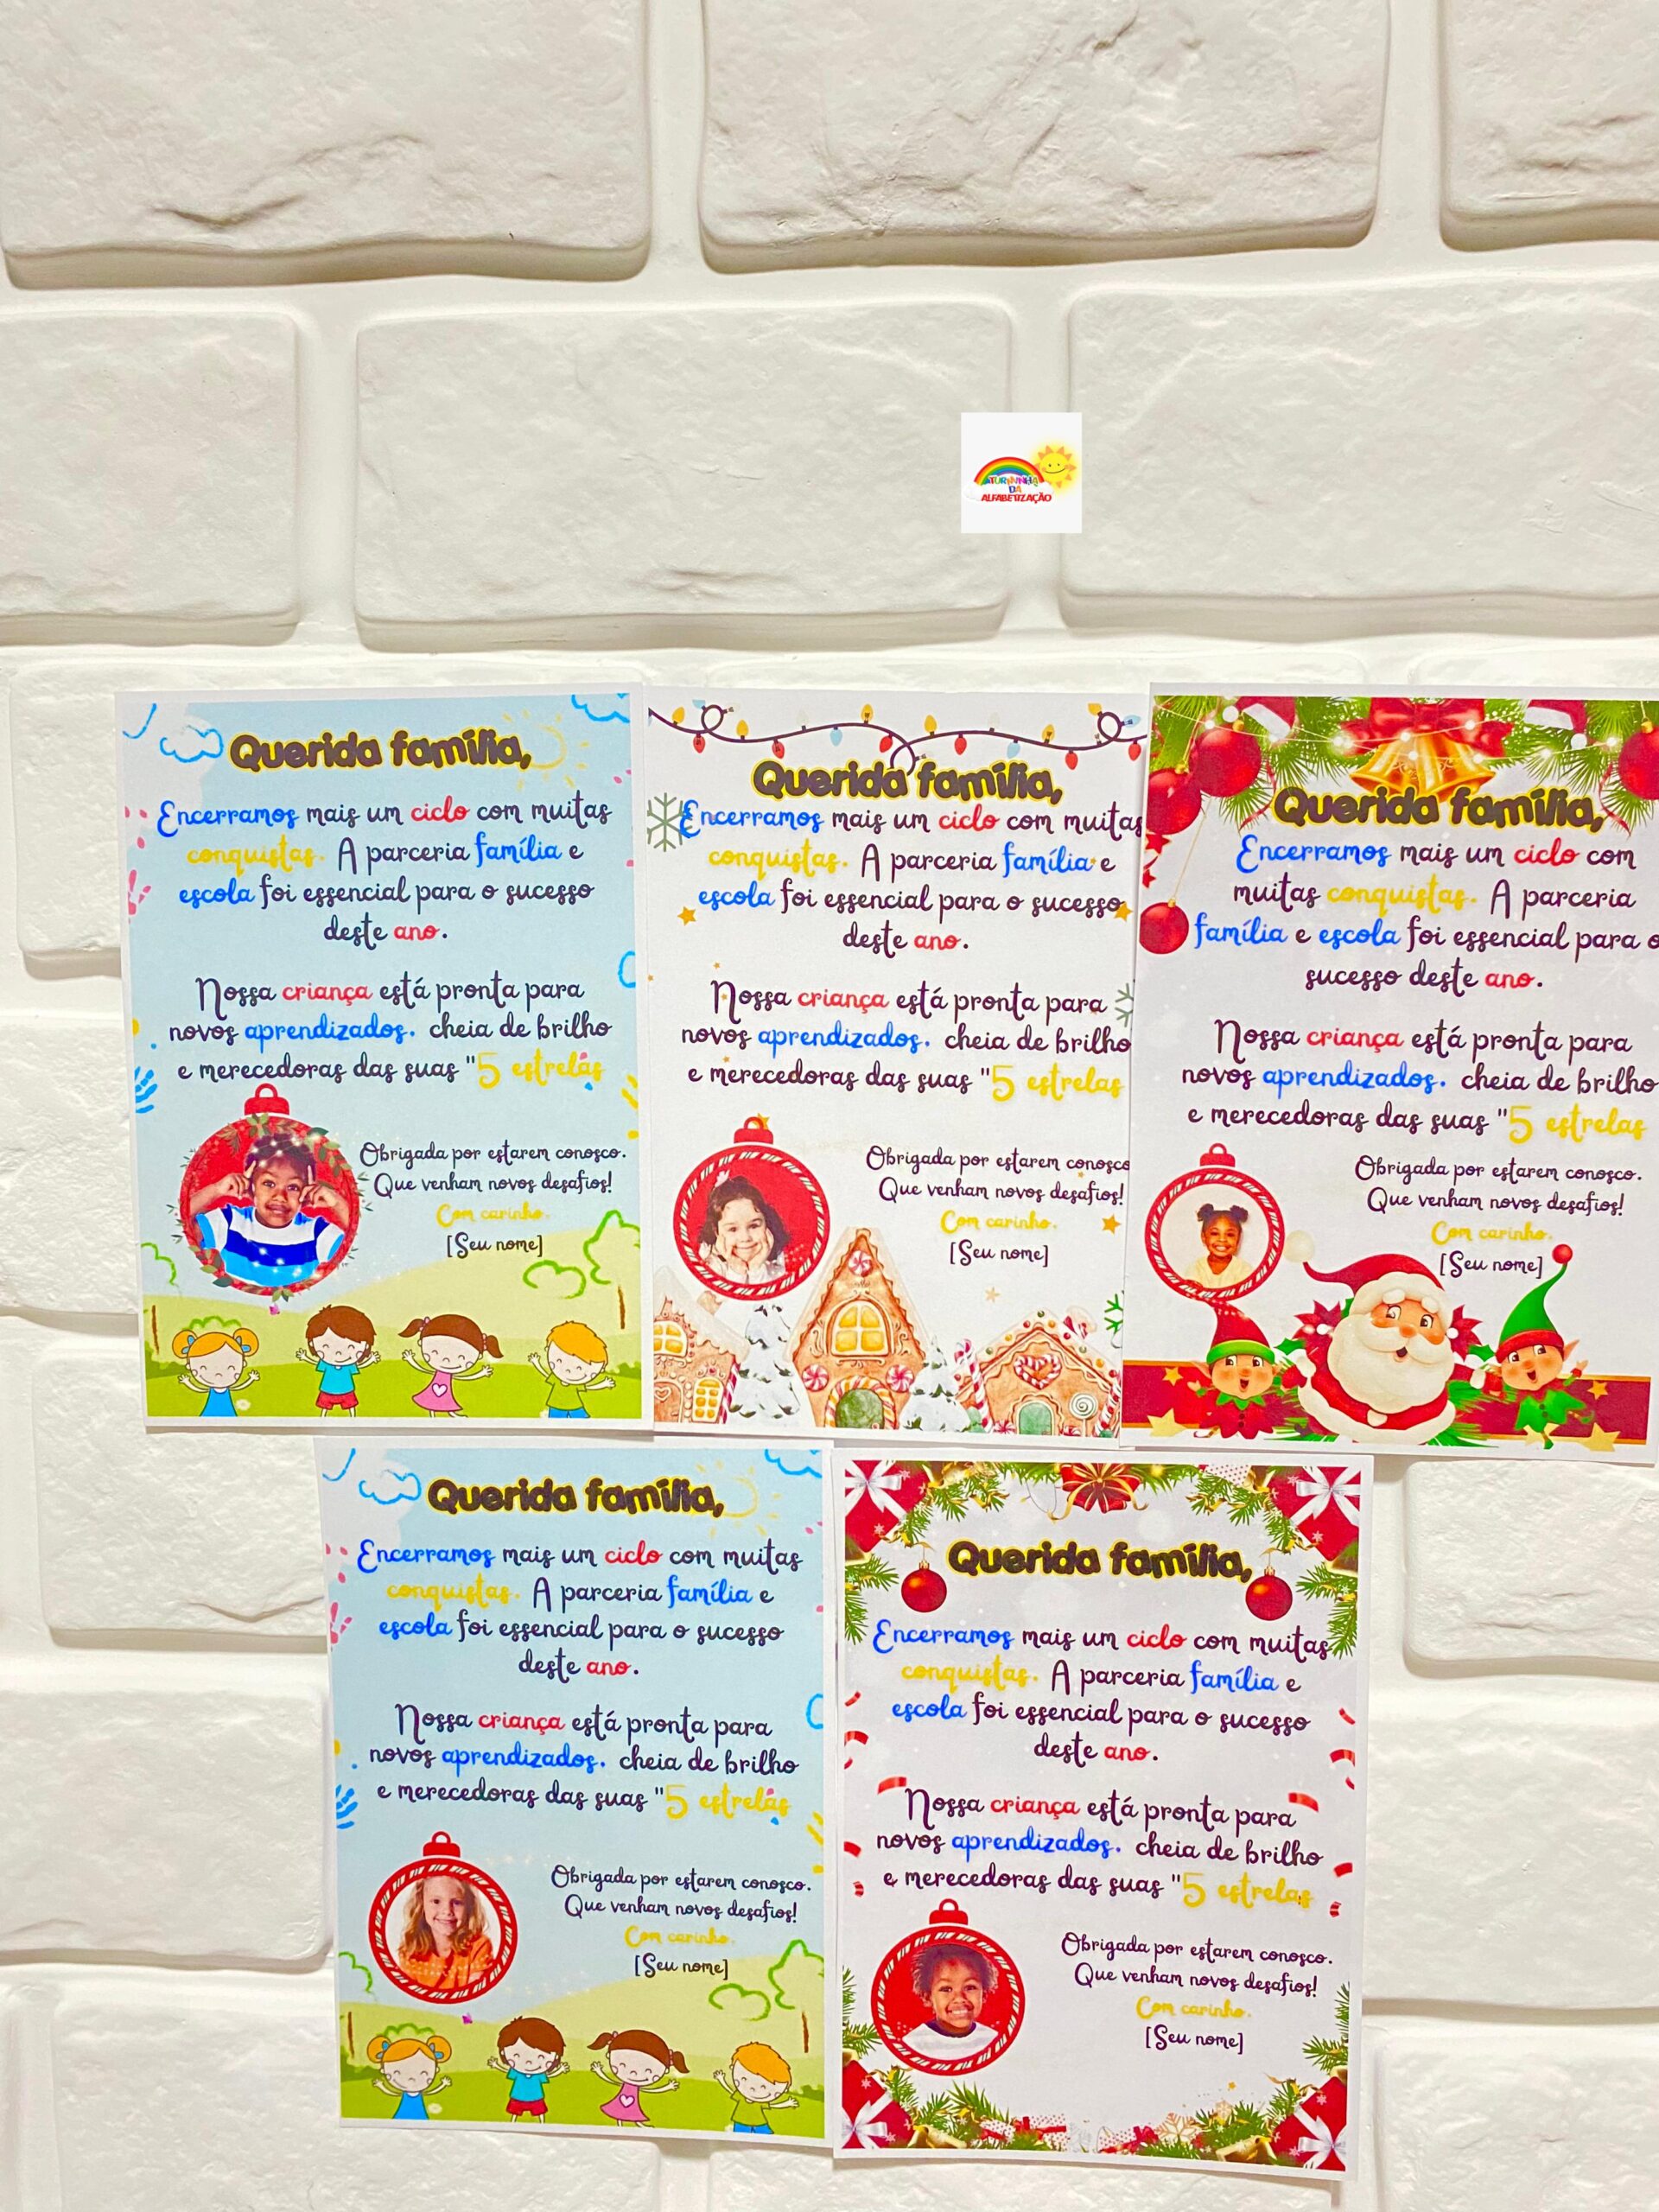 TURMINHA
DA
ALFABETIZAÇÃO
Querida família,
Encerramos mais um ciclo com muitas
conquistas. A parceria família e
escola foi essencial para o sucesso
deste ano.
Nossa criança está pronta para
novos aprendizados. cheia de brilho
e merecedoras das suas "5 estrelas
Obrigada por estarem conosco.
Que venham novos desafios!
Com carinho.
[Seu nome]
Querida família,
Encerramos mais um ciclo com muitas
conquistas. A parceria família e
escola foi essencial para o sucesso
deste ano.
Nossa criança está pronta para
novos aprendizados. cheia de brilho
e merecedoras das suas "5 estrelas
Obrigada por estarem conosco
Que venham novos desafios!
Com carinho.
[Seu nome]
Querida família,
Encerramos mais um ciclo com
muitas conquistas. A parceria
família e escola foi essencial para o
sucesso deste ano.
Nossa criança está pronta para
novos aprendizados. cheia de brilho
e merecedoras das suas "5 estrelas
Obrigada por estarem conosco.
Que venham novos desafios!
Com carinho.
[Seu nome]
Querida família,
Encerramos mais um ciclo com muitas
conquistas. A parceria família e
escola foi essencial para o sucesso
deste ano.
Nossa criança está pronta para
novos aprendizados. cheia de brilho
e merecedoras das suas "5 estrelas
Obrigada por estarem conosco.
Que venham novos desafios!
Com carinho.
[Seu nome]
Querida família,
Encerramos mais um ciclo com muitas
conquistas. A parceria família e
escola foi essencial para o sucesso
deste ano.
Nossa criança está pronta para
novos aprendizados. cheia de brilho
e merecedoras das suas "5 estrelas
Obrigada por estarem conosco.
Que venham novos desafios!
Com carinho.
[Seu nome]